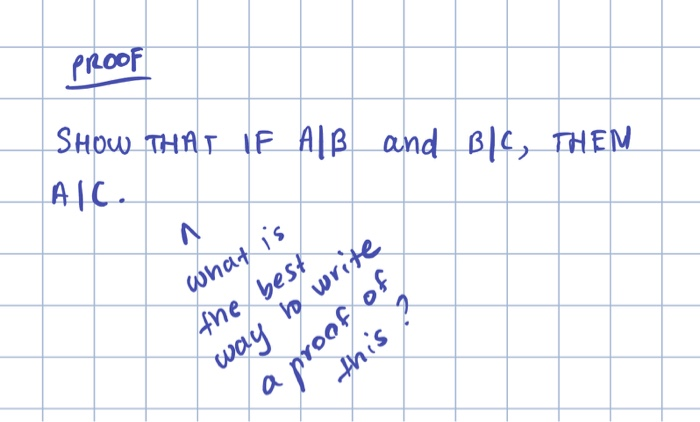 PROOF
SHOW THAT IF A|B and B|C, THEM
A|C.
^
what is
the best
way to write
a proof of
this?